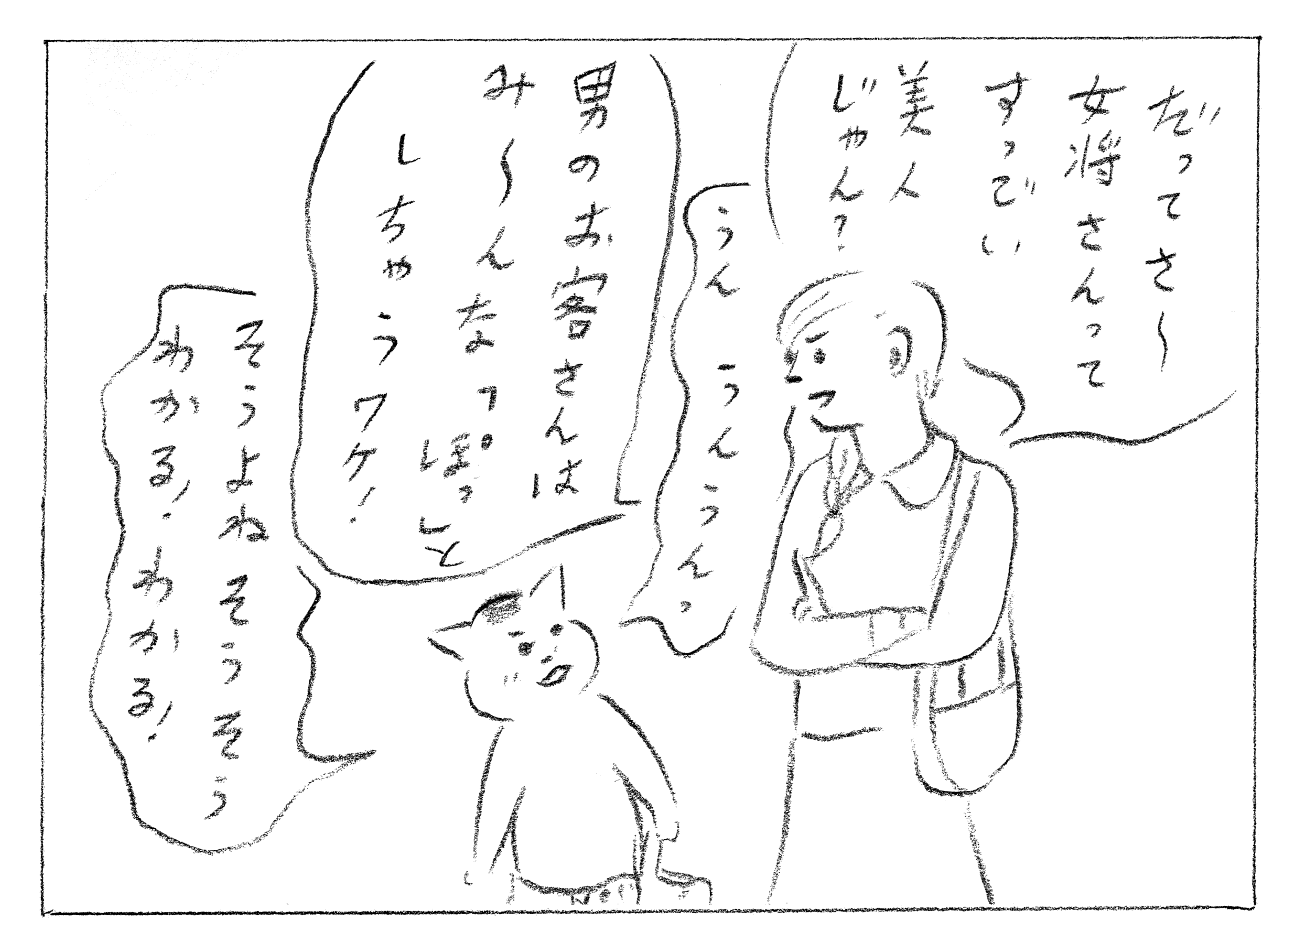 だってさ〜
女将さんって
すっごい
美人
じゃん?
うん うんうん。
男のお客さんは
み〜んなっ
ぽっと
しちゃうワケ!
そうよねそうそう
わかる!わかる!